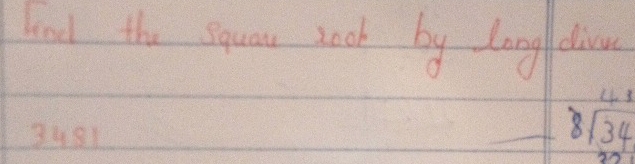 Find the Squau root by long divu
43
3481 — 8√34
32